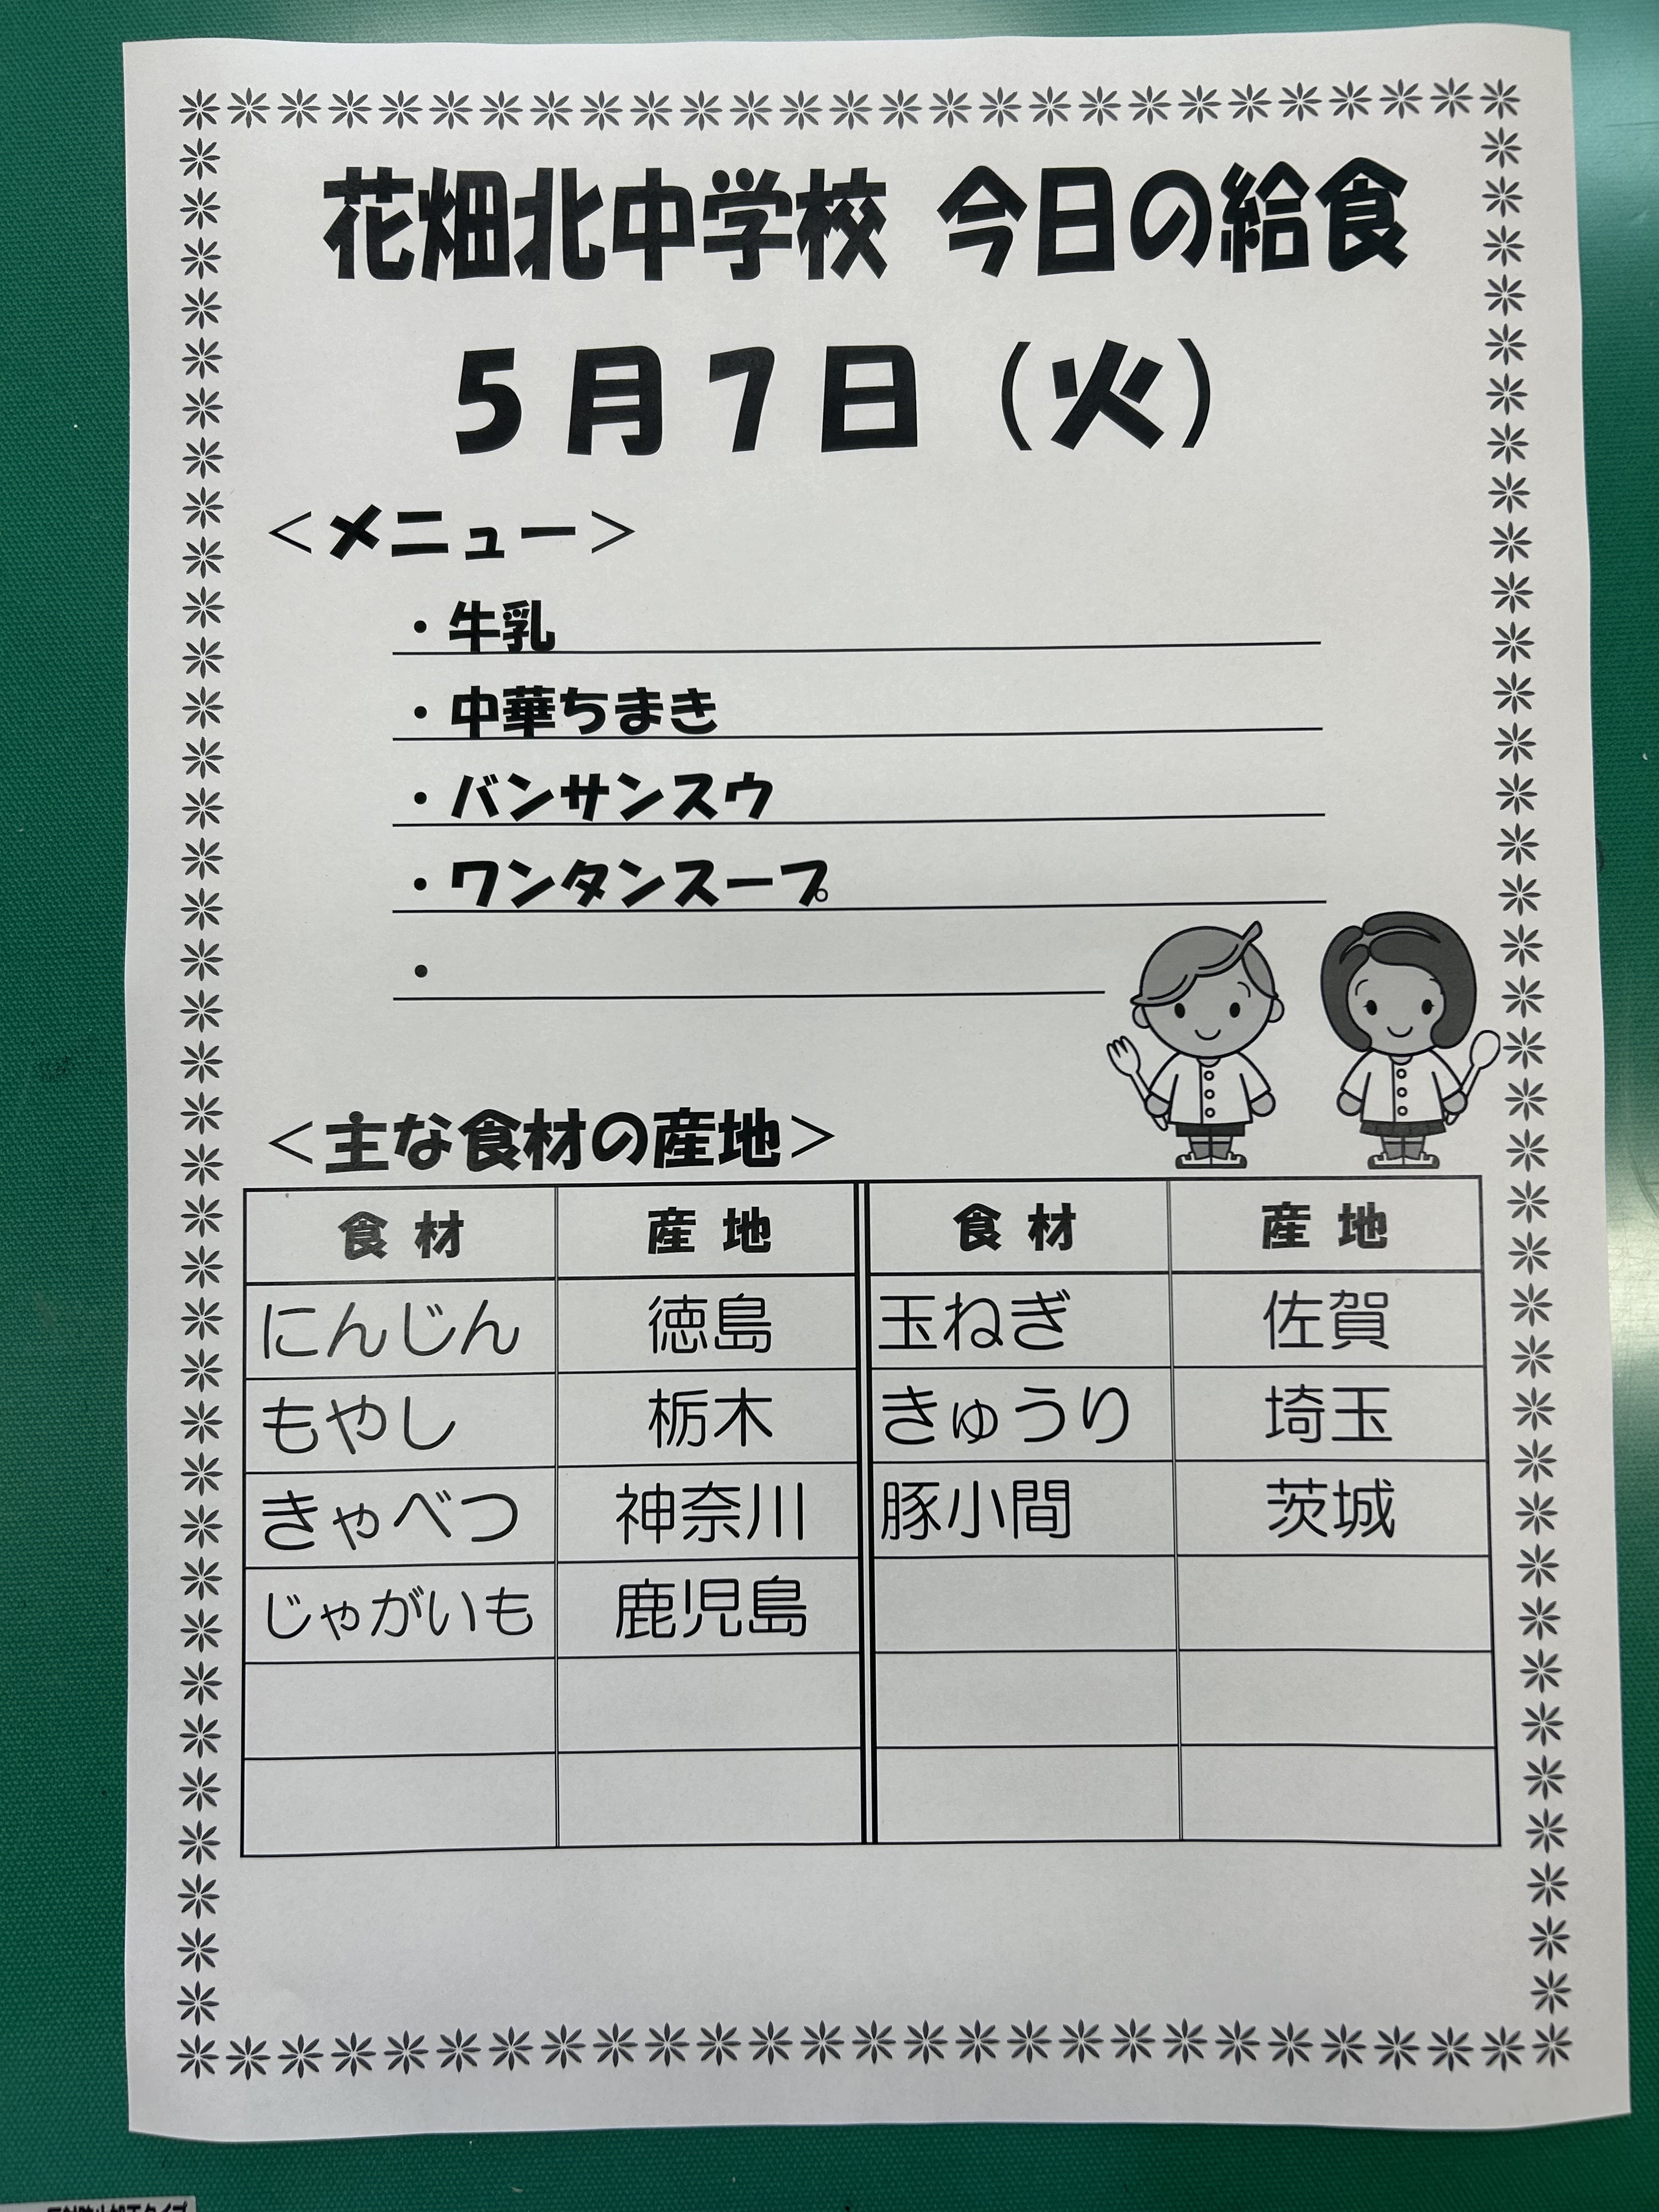 花畑北中学校 今日の給食
５月７日（火）
＜メニュー＞
・牛乳
・中華ちまき
・バンサンスウ
・ワンタンスープ
・
＜主な食材の産地＞
食材 産地 食材 産地
にんじん 徳島 玉ねぎ 佐賀
もやし 栃木 きゅうり 埼玉
きゃべつ 神奈川 豚小間 茨城
じゃがいも 鹿児島